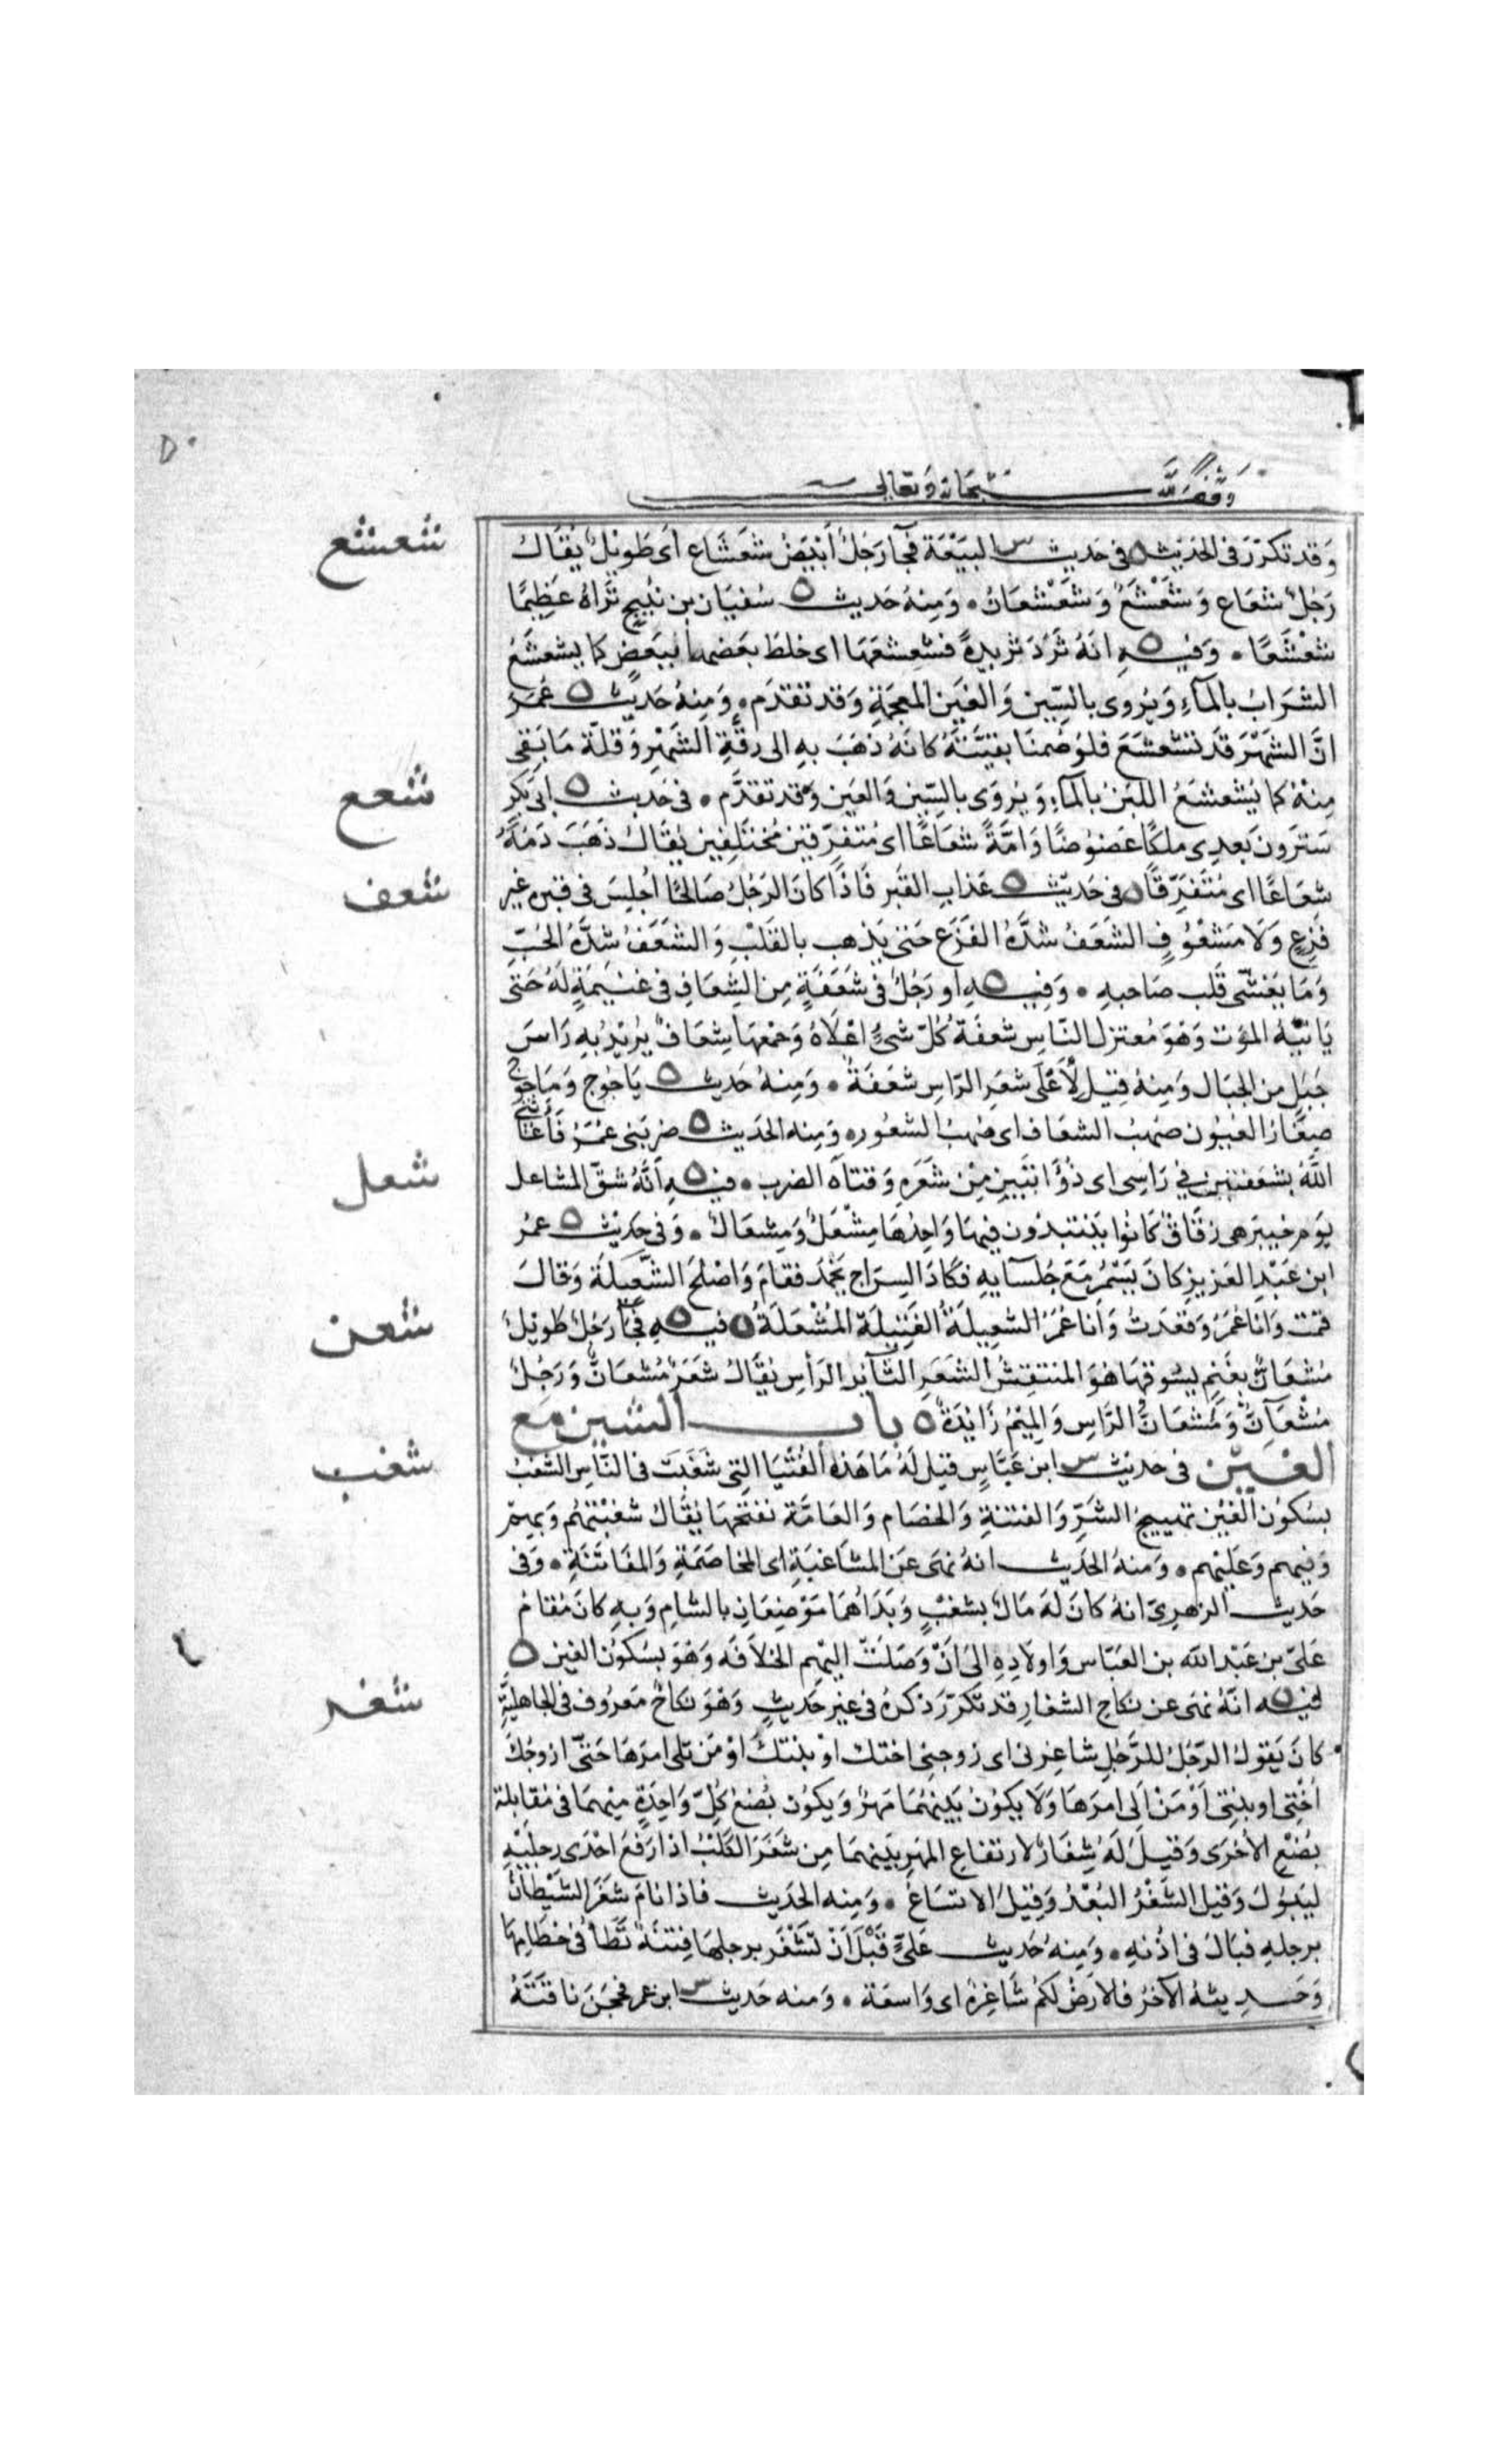 وَقف لله سبحانه وتعالى
وَقد تكرّرَ فى الحَديْث ه فى حَديث س البَيْعَة فجآ رَجُلٌ أبْيَضُ شعَشَاع أى طَويْلٌ يُقَالُ
شعشع
رَجُلٌ شعَاع وَ شَعْشَعٌ وَ شَعْشعَانٌ • وَمِنهُ حَديث ه سُفيَان بن نُبَيحٍ تَراهُ عَظِيمًا
شعْشَعًا • وَفيه ه انهُ ثَرَدَ ثريدةً فشعشعَهَا اى خلطَ بعَضهَا ببَعَضٍ كما يشعشَعُ
الشرَابُ بالمآءِ وَيُروى بالسِّين وَالغَين المعجَمَةِ وَقد تقدَم • وَمِنهُ حَديث ه عُمَرَ
انَّ الشَهْرَ قَد تشعْشعَ فلوْ صُمنَا بقيَّتَهُ كانَهُ ذهَبَ بهِ الى رقَّةِ الشهْرِ وَقلَّة مَا بَقى
مِنهُ كما يُشعشَعُ اللبَنُ بالمآءِ وَ يُروَى بالسِّينِ وَالعَين وَقد تقدَّم • فى حَديث ه ابى بَكرٍ
شعع
سَترَونَ بَعدِى ملكًا عَضوُضًا وَامَّةً شعَاعًا اى مُتفرِّقينَ مُختَلِفينَ يُقَالُ ذهَبَ دَمُهُ
شعَاعًا اى مُتَفَرِّقًا ه فى حَديْث ه عَذابِ القَبر فَاذَا كانَ الرَجُلُ صَالحًا اُجلِسَ فى قبره غيرَ
شعف
فَزِعٍ وَلَا مَشعُوُفٍ الشعَفُ شدَّةُ الفَزَع حَتى يَذهب بالقَلبْ وَالشعَفُ شدَّةُ الحُبِّ
وَمَا يَغشىّ قَلب صَاحبهِ • وَفِيه ه او رَجُلٌ فى شعَفَةٍ مِنَ الشِعَافِ فى غنَيمَةٍ لَهُ حَتى
يَاتيَهُ المَوْت وَهوَ مُعتزل النّاسِ شعفَةُ كُلّ شئٍ اعْلَاهُ وَجمْعهَا شِعَافٌ يُرِيْدُ بهِ رَاسَ
جَبَلٍ من الجبَال وَمِنهُ قِيْل لأَعَلَى شعَرِ الرّاسِ شعَفَةٌ • وَمِنهُ حَديث ه يَاجُوج وَمَاجُوج
صِغَارُ العُيُون صُهبُ الشعَاف اى صُهبُ الشعُور ه وَمِنه الحَديث ه ضرَبَنى عُمَرُ فَأغَاثَنى
اللَّهُ بشعَفتَيْن فى رَاسِى اى ذُؤَابتَيْنِ مِنْ شَعَرهِ وَقتَاهُ الضرب • فيه ه أنَّهُ شقّ المشاعل
شعل
يَومَ خيبرَ هى زقَاقٌ كانُوا يَنتَبذُون فيهَا وَاحِدُهَا مِشْعَلٌ وَمِشعَالٌ • وَفى حَدِيث ه عمُرَ
ابن عَبْدِ العَزيزِ كانَ يَسْمُرُ مَعَ جُلسَآيهِ فكَادَ السِرَاج يَخْمُدُ فقَامَ وَاصْلحَ الشَّعِيلَةَ وَقالَ
قمْت وَانا عُمَرُ وَقعَدتُ وَأنَا عُمَرُ الشعِيلَةُ الفَتِيلَة المُشْعَلَةُ ه فيه ه فجَآءَ رَجُلٌ طَويْلٌ
شعن
مُشعَانٌّ بغَنَمٍ يسُوقهَا هُوَ المنتَفِشُ الشعَرِ الثآئِرُ الرَأسِ يُقَالُ شعَرٌ مُشعَانٌّ وَرَجُلٌ
مُشْعَانٌّ وَمُشعَانُّ الرّاسِ وَالمِيْمُ زَايْدَةٌ ه بَاب الشين مَع
الغَيْن فى حَديْث س ابن عَبَّاسٍ قيل لَهُ مَا هَذه الفُتْيَا التِى شغَبَت فى النَّاسِ الشغبُ
شغب
بسُكوُن الغَيْن تهييجُ الشرِّ وَالفتنةِ وَالخصَام وَالعَامَّة تفتَحُهَا يُقَالُ شغبْتهُم وَبهِمْ
وَفيهم وَعَلَيْهم • وَمنهُ الحَديث انهُ نهَى عَن المشَاغبَةِ اى المخاصَمَةِ وَالمفَاتَنَةِ • وَفى
حَديث الزهرِىّ انهُ كانَ لَهُ مَالٌ بشغبٍ وَبَدَا هُمَا مَوْضِعَانِ بالشامِ وَبهِ كانَ مُقامُ
عَلىّ بن عَبْد اللّه بن العَبّاس وَاولَادِهِ الى اَنْ وَصَلتْ اليْهِم الخلَافَه وَهْوَ بسُكوُن الغين ه
فيه ه انَّهُ نَهَى عن نكاحِ الشغارِ قد تكرّرَ ذكرهُ فى غيرْ حَديثٍ وَهْوَ نكاحٌ مَعرُوف فى الجاهليَّةِ
شغر
كانَ يَقولُ الرّجُلُ للرَّجُلِ شاغِرنى اى زوجنى اختك اوْ بنْتكَ اوْ مَن تلى امرَهَا حَتّى ازوجُكَ
اُخْتِى او بنِتى اَوْ مَنْ اَلى امرَهَا وَلَا يكوُن بَينهُمَا مَهرٌ وَيكوُن بُضعُ كُلِّ وَاحِدَةٍ مِنهمَا فى مُقابلة
بُضعْ الأخرَى وَقيلَ لَهُ شِغَارٌ لارتفاعِ المهرِ بَينهمَا مِن شغَرَ الكَلبُ اذا رَفعَ احْدَى رجلَيْهِ
ليَبُولَ وَقيل الشَغْرُ البُعْدُ وَقِيْلَ الاتسَاعُ • وَمنه الحَديث فاذا نامَ شغَرَ الشيْطَانُ
برجلهِ فبَالَ فى اذُنهِ • وَمِنهُ حَديث عَلىٍّ قَبْلَ اَنْ تَشْغَر برجلهَا فِتنَةٌ تَطَأُ فى خطَامِهَا
وَحَديثهُ الآخرُ فالارَضُ لكم شَاغِرةٌ اى وَاسعَة • وَمنه حَديث س ابن عمر فحجَنَ ناقَتَهُ